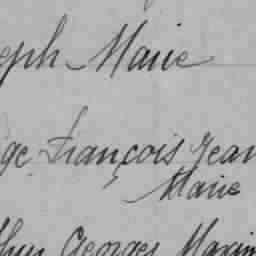 eph Marie
ge François Jean
Marie
Georges Maxim